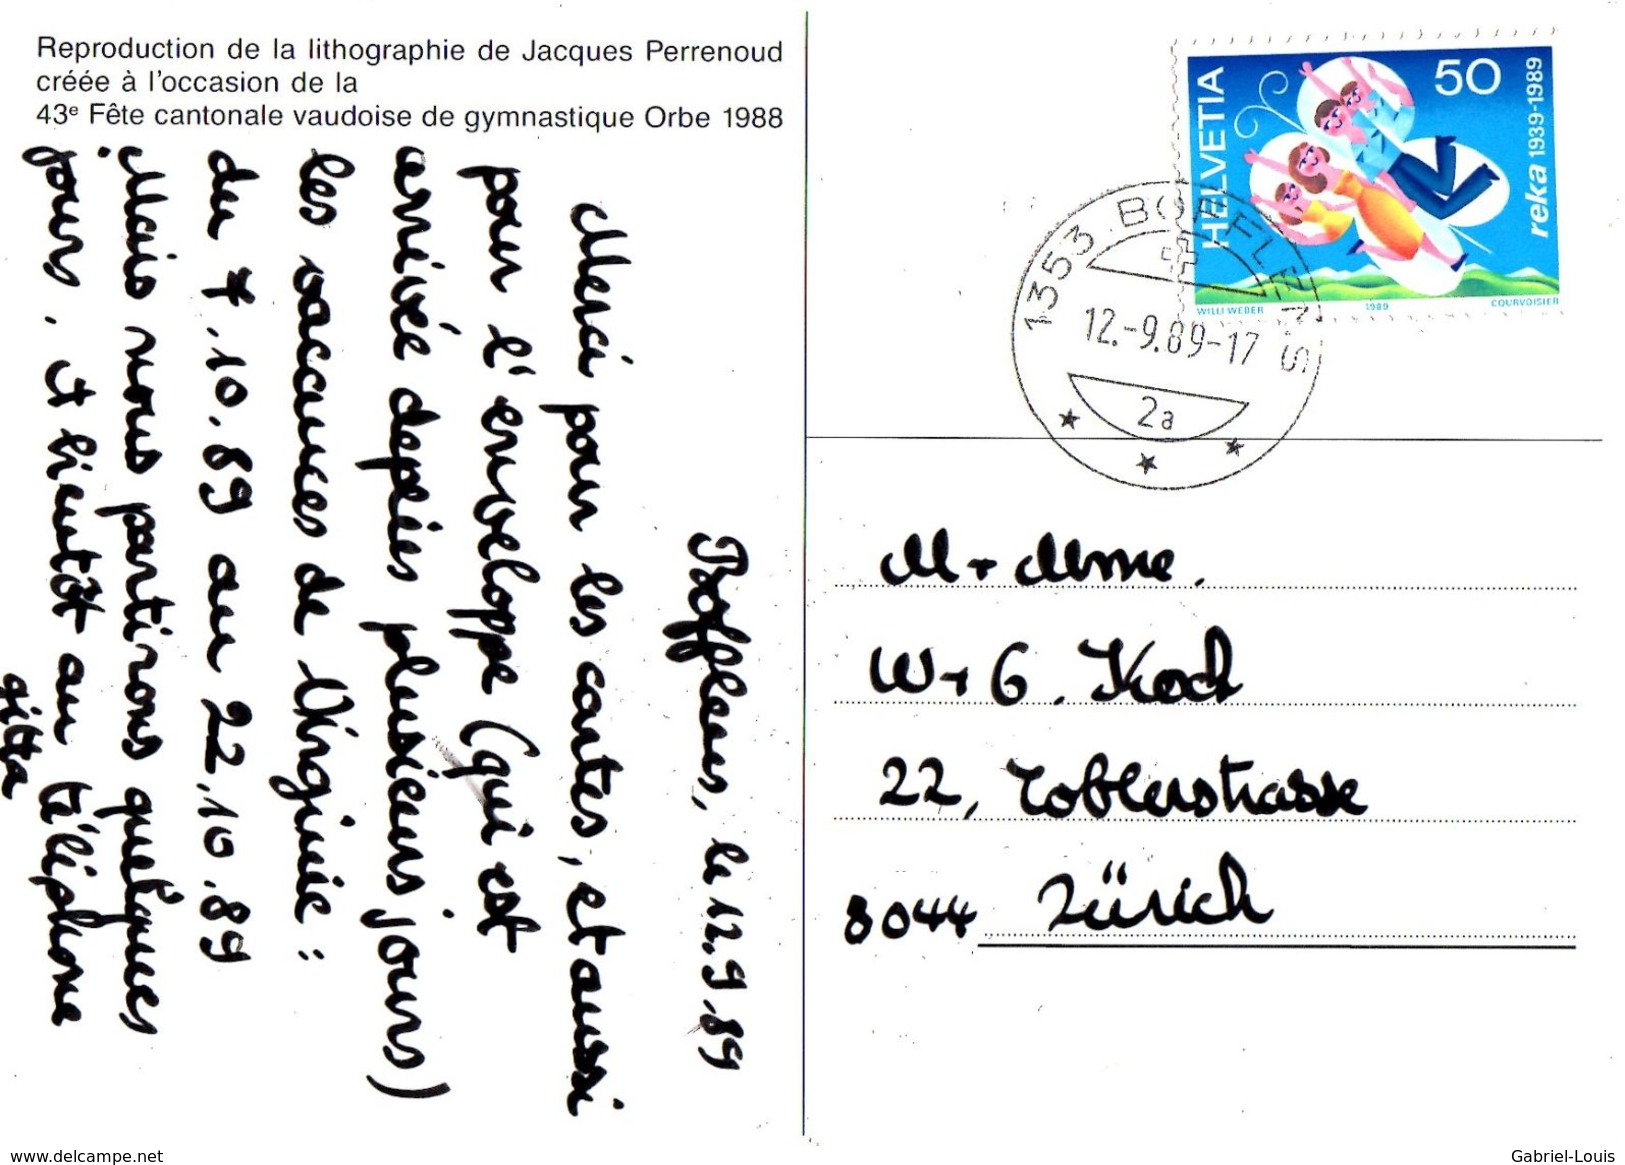 Reproduction de la lithographie de Jacques Perrenoud
créée à l'occasion de la
43e Fête cantonale vaudoise de gymnastique Orbe 1988
Bofflens, le 12.9.89
Merci pour les cartes, et aussi
pour l'enveloppe (qui est
arrivée depuis plusieurs jours)
les vacances de Virginie :
du 7.10.89 au 22.10.89
Mais nous partirons quelques
jours. et bientôt au téléphone
gitta
HELVETIA
50
reka 1939-1989
WILLI WEBER
1989
COURVOISIER
1353 BOFFLENS
12.-9.89-17
2a
M + Mme.
W + G. Koch
22, Toblerstrasse
8044 Zürich
www.delcampe.net
Gabriel-Louis